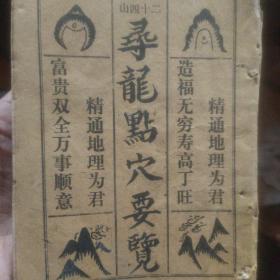 二十四山
尋龍點穴要覽
精通地理为君
造福无穷寿高丁旺
精通地理为君
富贵双全万事顺意